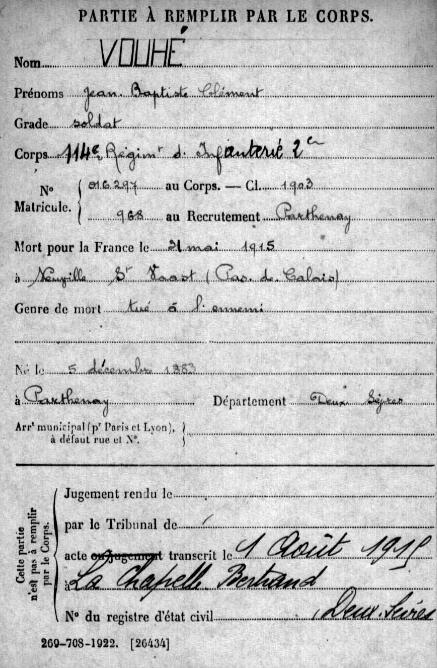 PARTIE À REMPLIR PAR LE CORPS.
Nom VOUHÉ
Prénoms Jean Baptiste Clément
Grade soldat
Corps 114e Régimt d'Infanterie 2 Cie
Nº Matricule. { 016297 au Corps. — Cl. 1903
968 au Recrutement Parthenay
Mort pour la France le 21 mai 1915
à Neuville St Vaast (Pas de Calais)
Genre de mort tué à l'ennemi
Né le 5 décembre 1883
à Parthenay Département Deux Sèvres
Arrt municipal (pr Paris et Lyon), à défaut rue et Nº.
Cette partie n'est pas à remplir par le Corps.
Jugement rendu le
par le Tribunal de
acte ou jugement transcrit le 1 Août 1915
à La Chapelle Bertrand
Nº du registre d'état civil Deux-Sèvres
269-708-1922. [26434]